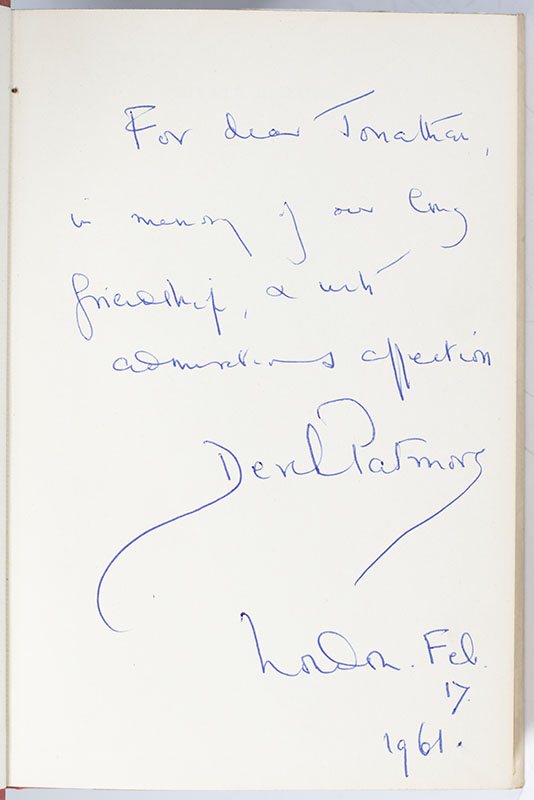 For dear Jonathan,
in memory of our long
friendship, & with
admiration & affection
Derek Patmore
London. Feb.
17.
1961.